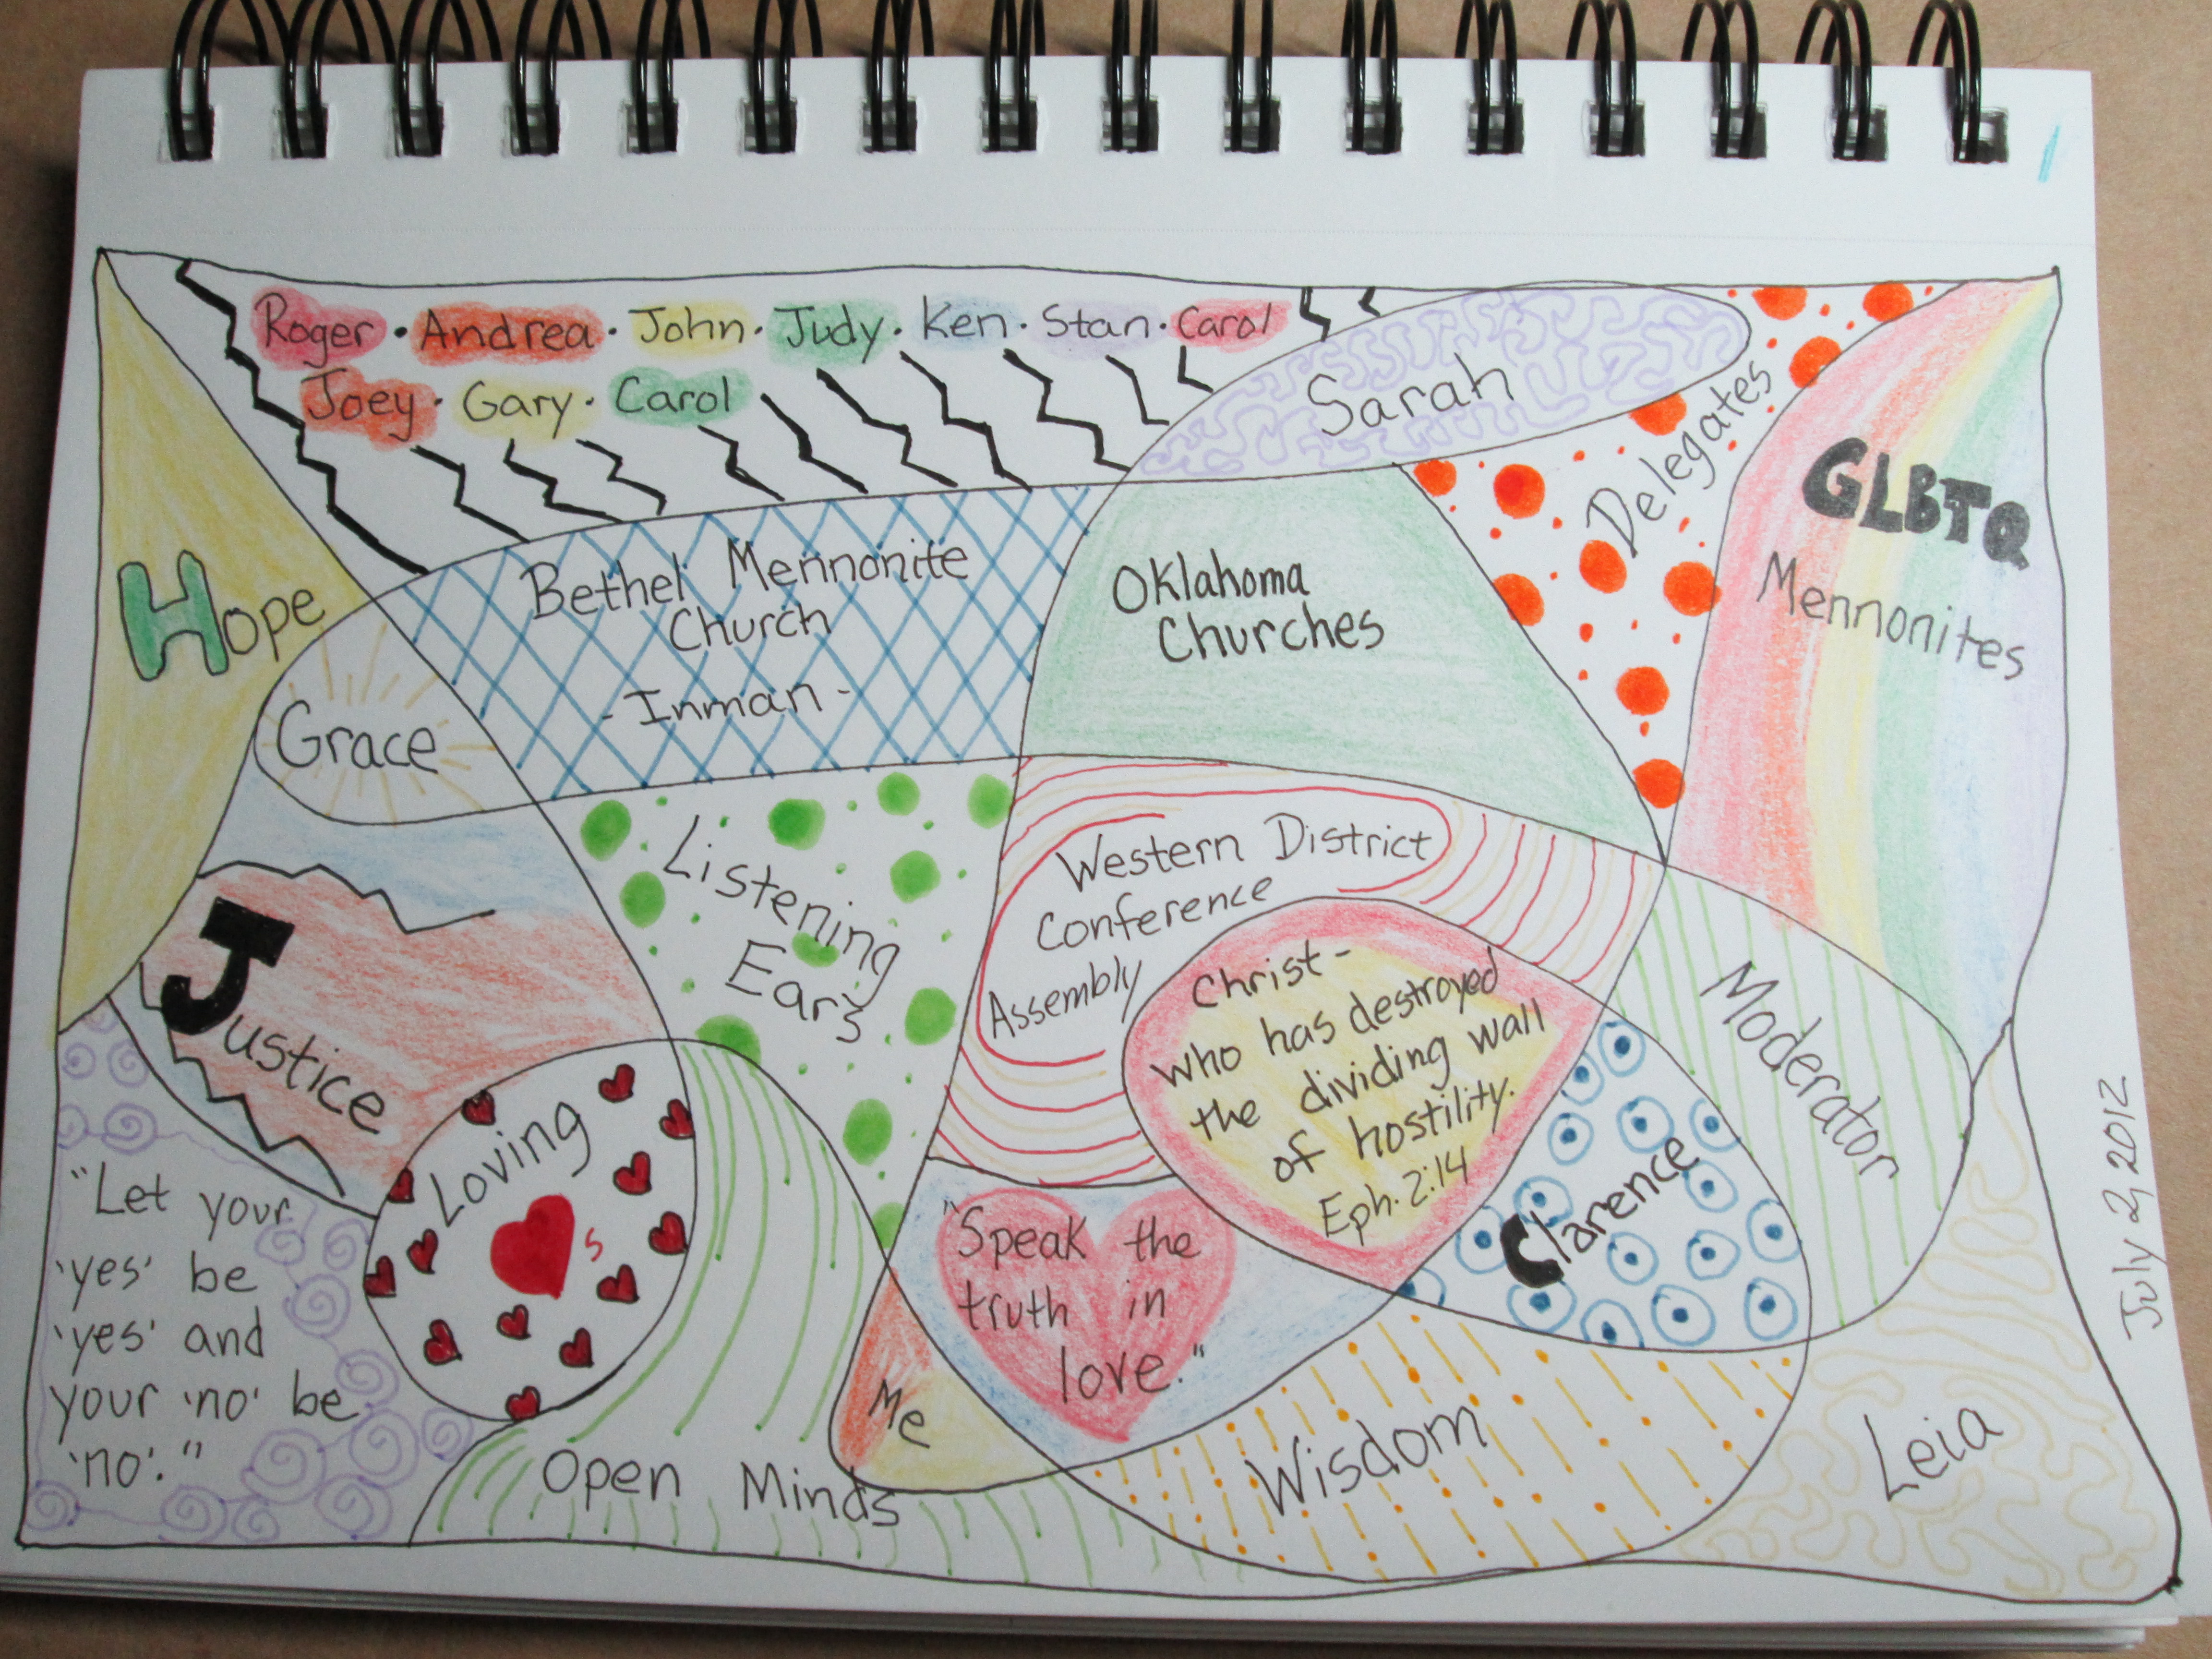 Roger · Andrea · John · Judy · Ken · Stan · Carol
Joey · Gary · Carol
Sarah
Delegates
GLBTQ
Mennonites
Hope
Grace
Bethel Mennonite
Church
- Inman -
Oklahoma
Churches
Listening
Ears
Western District
Conference
Assembly
Christ -
who has destroyed
the dividing wall
of hostility.
Eph. 2:14
Moderator
Justice
Loving
s
"Speak the
truth in
love."
Clarence
"Let your
'yes' be
'yes' and
your 'no' be
'no'."
Open Minds
Me
Wisdom
Leia
July 2, 2012